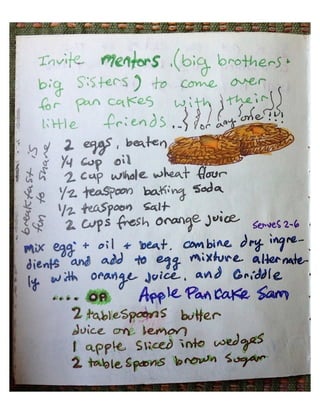 Invite mentors (big brothers +
big Sisters) to come over
for pan cakes with their
little friends... for any one!!!
breakfast is
fun to share
2 eggs, beaten
1/4 cup oil
2 cup whole wheat flour
1/2 teaspoon baking soda
1/2 teaspoon salt
2 cups fresh orange juice
serves 2-6
mix egg + oil + beat, combine dry ingre-
dients and add to egg mixture alternate-
ly with orange juice, and Griddle
.... OR Apple Pancake Sam
2 tablespoons butter
Juice one lemon
1 apple sliced into wedges
2 tablespoons brown sugar